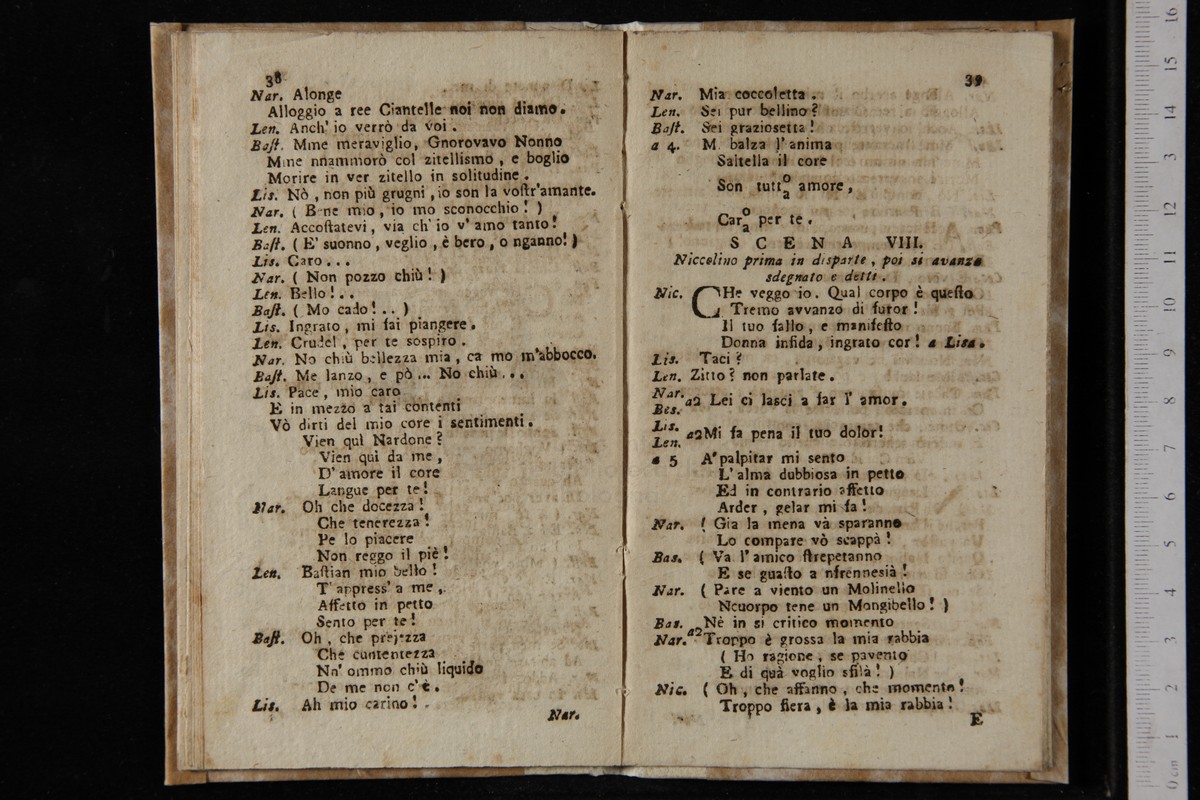 38
Nar. Alonge
Alloggio a ree Ciantelle noi non diamo.
Len. Anch' io verrò da voi.
Bast. Mme meraviglio, Gnorovavo Nonno
Mme nnammorò col zitellismo, e boglio
Morire in ver zitello in solitudine.
Lis. Nò, non più grugni, io son la vostr'amante.
Nar. ( Bene mio, io mo sconocchio! )
Len. Accostatevi, via ch' io v' amo tanto!
Bast. ( E' suonno, veglio, è bero, o nganno! )
Lis. Caro...
Nar. ( Non pozzo chiù! )
Len. Bello!..
Bast. ( Mo cado!.. )
Lis. Ingrato, mi fai piangere.
Len. Crudel, per te sospiro.
Nar. No chiù bellezza mia, ca mo m'abbocco.
Bast. Me lanzo, e pò... No chiù...
Lis. Pace, mio caro
E in mezzo a tai contenti
Vò dirti del mio core i sentimenti.
Vien quì Nardone?
Vien qui da me,
D' amore il core
Langue per te!
Nar. Oh che docezza!
Che tenerezza!
Pe lo piacere
Non reggo il piè!
Len. Bastian mio bello!
T' appress' a me,
Affetto in petto
Sento per te!
Bast. Oh, che prejezza
Che cuntentezza
Nn' ommo chiù liquido
De me non c' è.
Lis. Ah mio carino!
Nar.
39
Nar. Mia coccoletta.
Len. Sei pur bellino?
Bast. Sei graziosetta!
a 4. M. balza l' anima
Saltella il core
Son tutt o/a amore,
Car o/a per te.
SCENA VIII.
Niccolino prima in disparte, poi si avanza
sdegnato e detti.
Nic. CHe veggo io. Qual corpo è questo
Tremo avvanzo di furor!
Il tuo fallo, e manifesto
Donna infida, ingrato cor! a Lisa.
Lis. Taci?
Len. Zitto? non parlate.
Nar. Bes. a2 Lei ci lasci a far l' amor.
Lis. Len. a2 Mi fa pena il tuo dolor!
a 5 A' palpitar mi sento
L' alma dubbiosa in petto
Ed in contrario affetto
Arder, gelar mi fa!
Nar. ( Gia la mena và sparanno
Lo compare vò scappà!
Bas. ( Va l' amico strepetanno
E se guasto a nfrennesià!
Nar. ( Pare a viento un Molinello
Ncuorpo tene un Mongibello! )
Bas. Nè in si critico momento
Nar. a2 Troppo è grossa la mia rabbia
( Ho ragione, se pavento
E di quà voglio sfilà! )
Nic. ( Oh, che affanno, che momento!
Troppo fiera, è la mia rabbia!
E